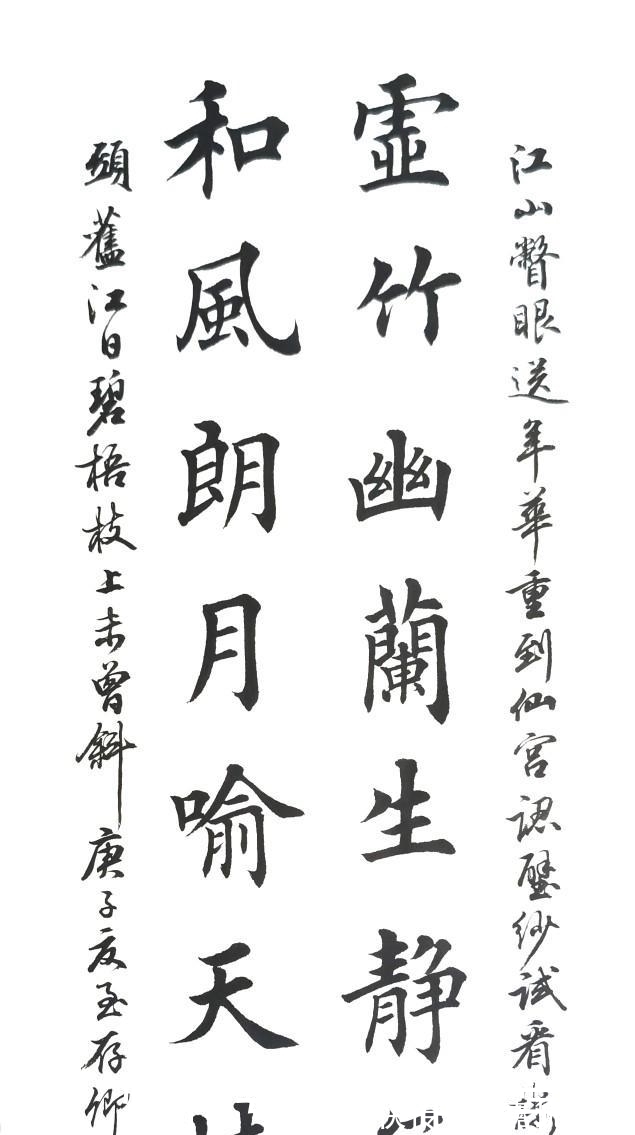 江山瞥眼送年華重到仙宮認壁紗試看
虛竹幽蘭生靜
和風朗月喻天
頭舊江日碧梧枝上未曾斜 庚子夏至存卿